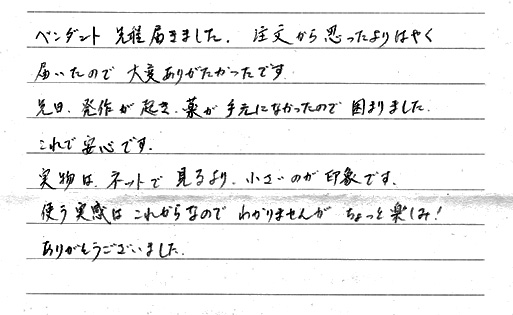 ペンダント 先程届きました. 注文から思ったよりはやく
届いたので 大変ありがたかったです.
先日、発作が起き、薬が手元になかったので 困りました.
これで安心です.
実物は、ネットで見るより、小さいのが印象です.
使う実感は これからなので わかりませんが ちょっと楽しみ!
ありがとうございました.